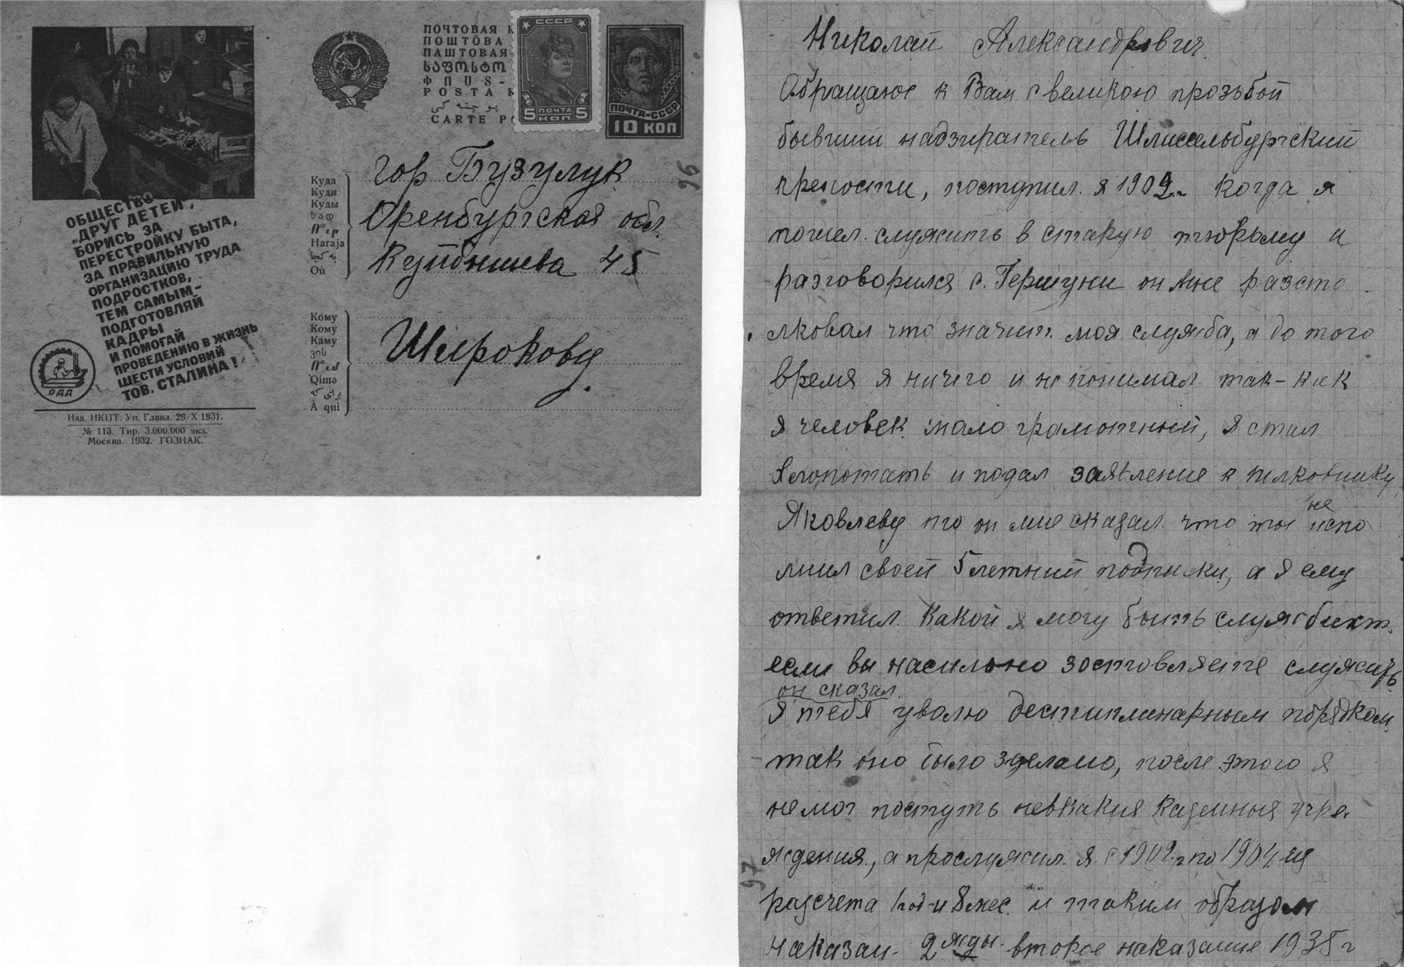 ОБЩЕСТВО
„ДРУГ ДЕТЕЙ",
БОРИСЬ ЗА
ПЕРЕСТРОЙКУ БЫТА,
ЗА ПРАВИЛЬНУЮ
ОРГАНИЗАЦИЮ ТРУДА
ПОДРОСТКОВ,
ТЕМ САМЫМ–
ПОДГОТОВЛЯЙ
КАДРЫ
И ПОМОГАЙ
ПРОВЕДЕНИЮ В ЖИЗНЬ
ШЕСТИ УСЛОВИЙ
ТОВ. СТАЛИНА!
ОДД
Изд. НКПТ. Уп. Главл. 29/X 1931.
№ 113. Тир. 3.000.000 экз.
Москва. 1932. ГОЗНАК.
ПОЧТОВАЯ К
ПОШТОВА
ПАШТОВАЯ
ՓՈՍՏ-
POSTA K
CARTE PO
СССР
5 ПОЧТА 5
КОП.
ПОЧТА-СССР
10 КОП
96
Куда
Куди
Куды
Haraja
Où
гор Бузулук
Оренбургская обл.
Куйбышева 45
Кому
Кому
Каму
ვის
Qimə
À qui
Широкову
Николай Александрович
Обращаюс к Вам с великою прозьбой
бывший надзиратель Шлиссельбургский
крепости, поступил. я 1902 г. когда я
пошел. служить в старую тюрьму и
разговорился с. Гершуни он мне разсто
лковал что значит. моя служба, а до того
время я ничего и не понимал так-как
я человек мало грамотный, я стал
хлопотать и подал заявление к полковнику
Яковлеву но он мне сказал что ты не испо
лнил своей 5 летний подписки, а я ему
ответил какой я могу быть служ
если вы насильно зоставляете служить
он сказал.
я тебя уволю десциплинарным порядком
так оно было зделано, после этого я
не мог поступть невкакия казенныя учре
ждения, а прослужил я с 1902 г по 1904. из
разсчета 1 год и 8 мес. и таким образом
наказан 2жды. второе наказание 1935 г
97